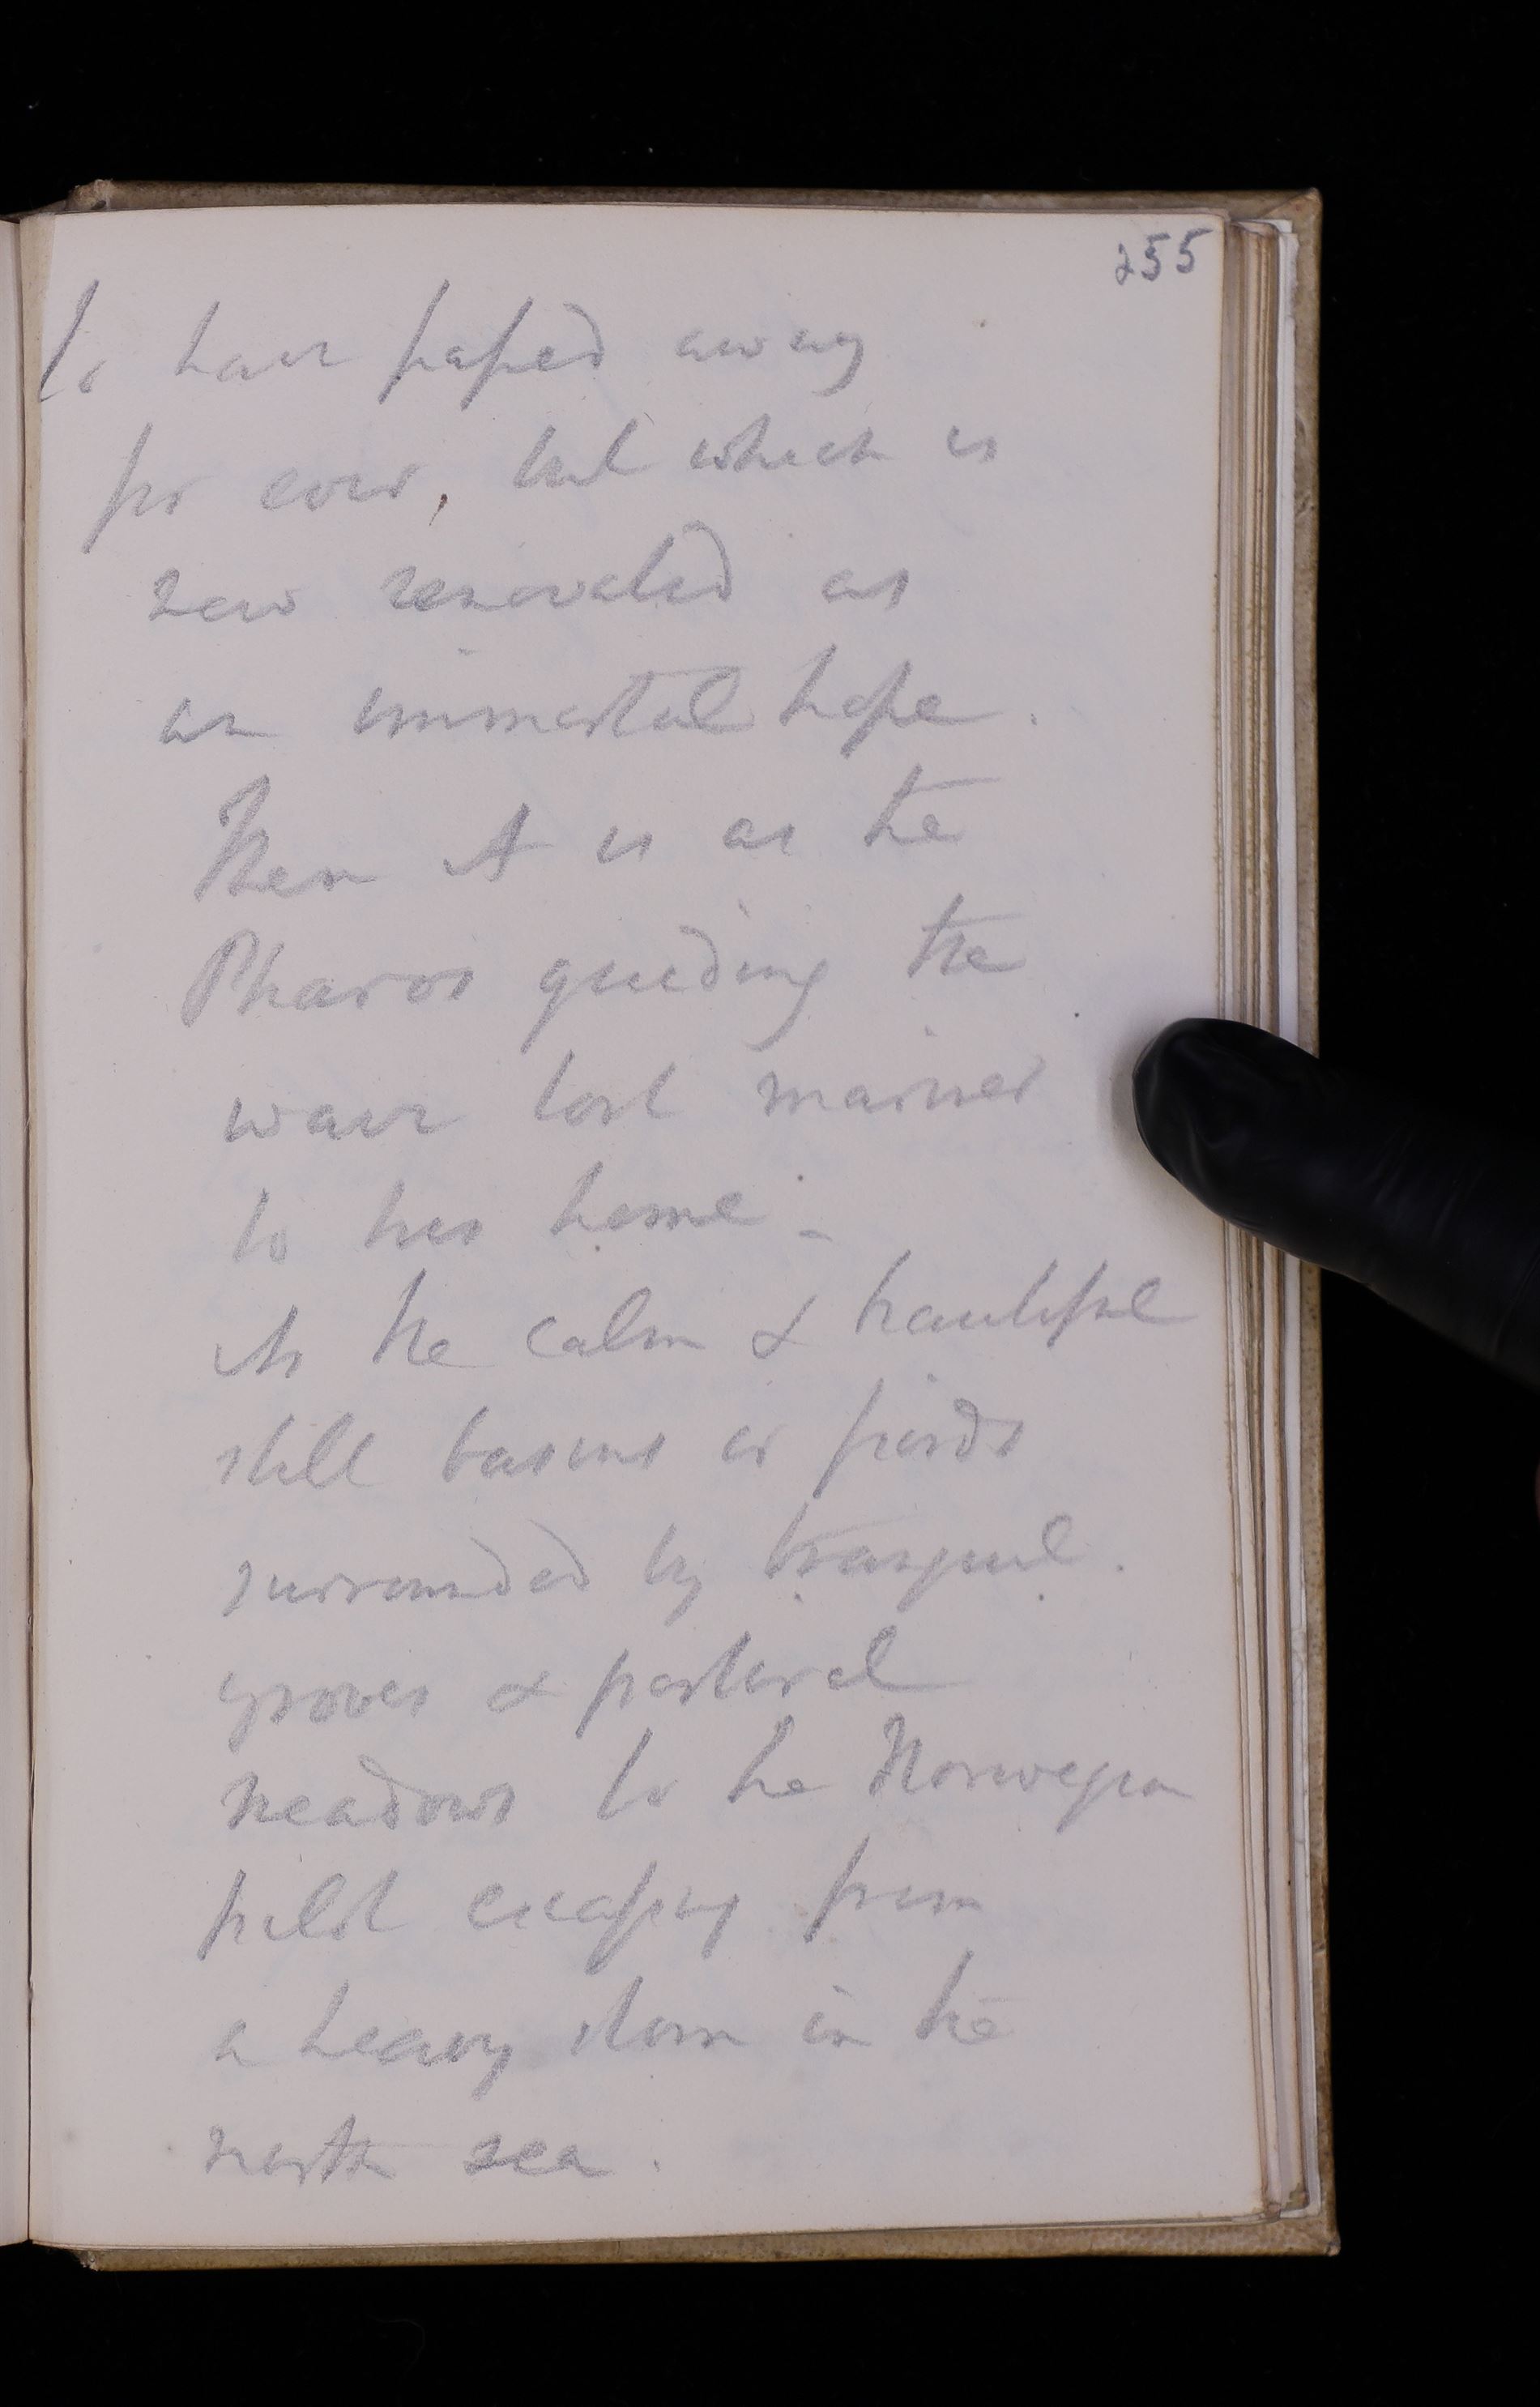 255
to have passed away
for ever, but which is
now renovated as
an immortal hope.
Then it is as the
Pharos guiding the
wave lost mariner
to his home -
As the calm & beautiful
still basins or fiords
surrounded by tranquil
groves & pastural
meadows to the Norwegian
pilot escaping from
a heavy storm in the
north sea.